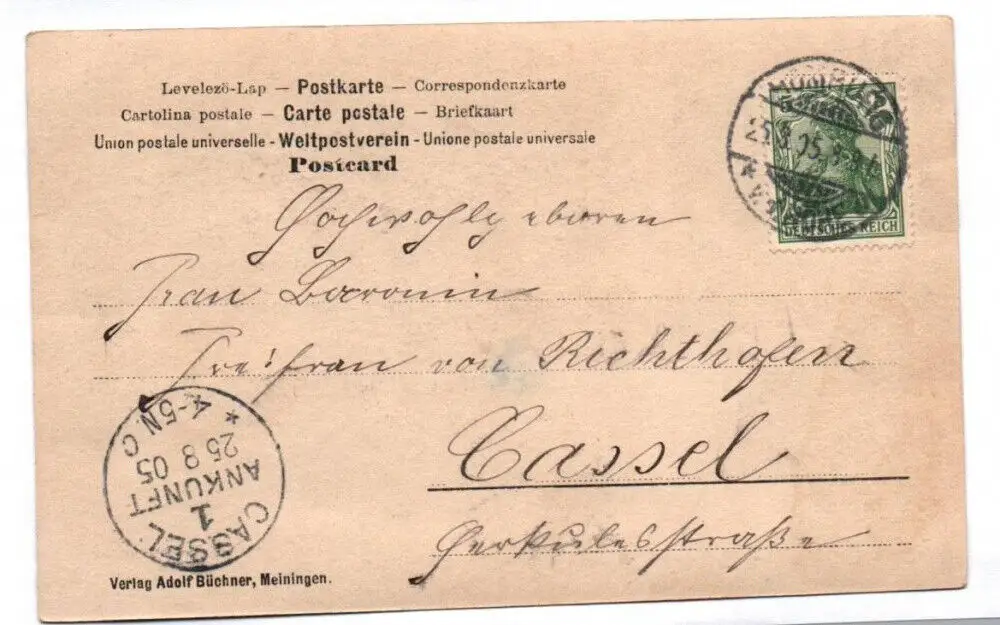 Levelezö-Lap — Postkarte — Correspondenzkarte
Cartolina postale — Carte postale — Briefkaart
Union postale universelle - Weltpostverein - Unione postale universale
Postcard
25.8.05
DEUTSCHES REICH
Hochwohlgeboren
Frau Baronin
Freifrau von Richthofen
Cassel
Herkulesstraße
CASSEL
1
ANKUNFT
25 8 05
* 4-5N C
Verlag Adolf Büchner, Meiningen.